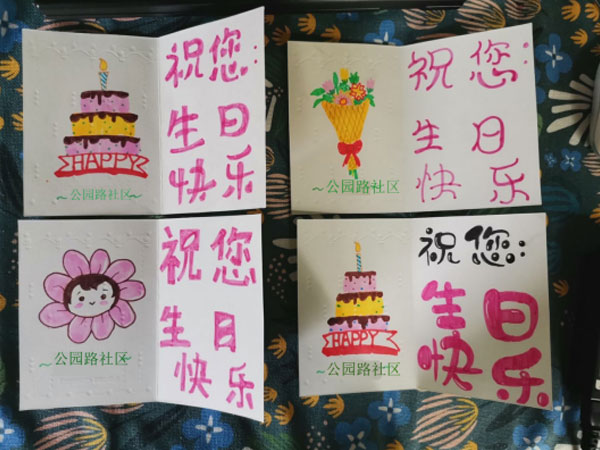 HAPPY
~公园路社区~
祝您:
生日
快乐
~公园路社区
祝您:
生日
快乐
~公园路社区
祝您
生日
快乐
HAPPY
~公园路社区
祝您:
生日
快乐